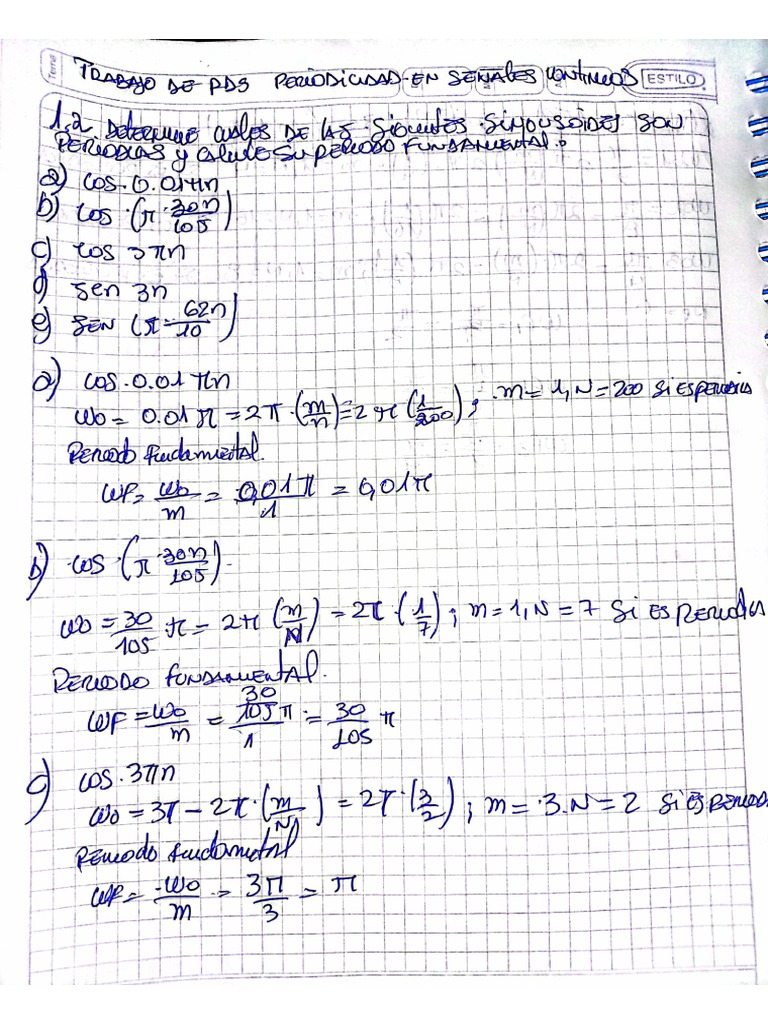 Tema
TRABAJO DE PDS PERIODICIDAD EN SEÑALES CONTINUAS ESTILO
1,2 DETERMINE CUALES DE LAS SIGUIENTES SINOUSOIDES SON
PERIODICAS Y CALCULE SU PERIODO FUNDAMENTAL.
a) cos. 0.01πn
b) cos · (π · 30n/105)
c) cos 3πn
d) sen 3n
e) SEN (π = 62n/10)
a) cos. 0.01πn
ωo = 0.01π = 2π · (m/n) = 2π (1/200) ; m = 1, N = 200 Si ES PERIODICA
Periodo fundamental.
ωF = ωo/m = 0,01π/1 = 0,01π
b) cos · (π · 30n/105).
ωo = 30/105 π = 2π (m/N) = 2π · (1/7) ; m = 1, N = 7 Si ES PERIODICA
PERIODO FUNDAMENTAL.
ωF = ωo/m = 30/105 π/1 = 30/105 π
c) cos. 3πn
ωo = 3π - 2π · (m/N) = 2π · (3/2) ; m = 3. N = 2 Si ES PERIOD
PERIODO fundamental
ωF = ωo/m = 3π/3 = π